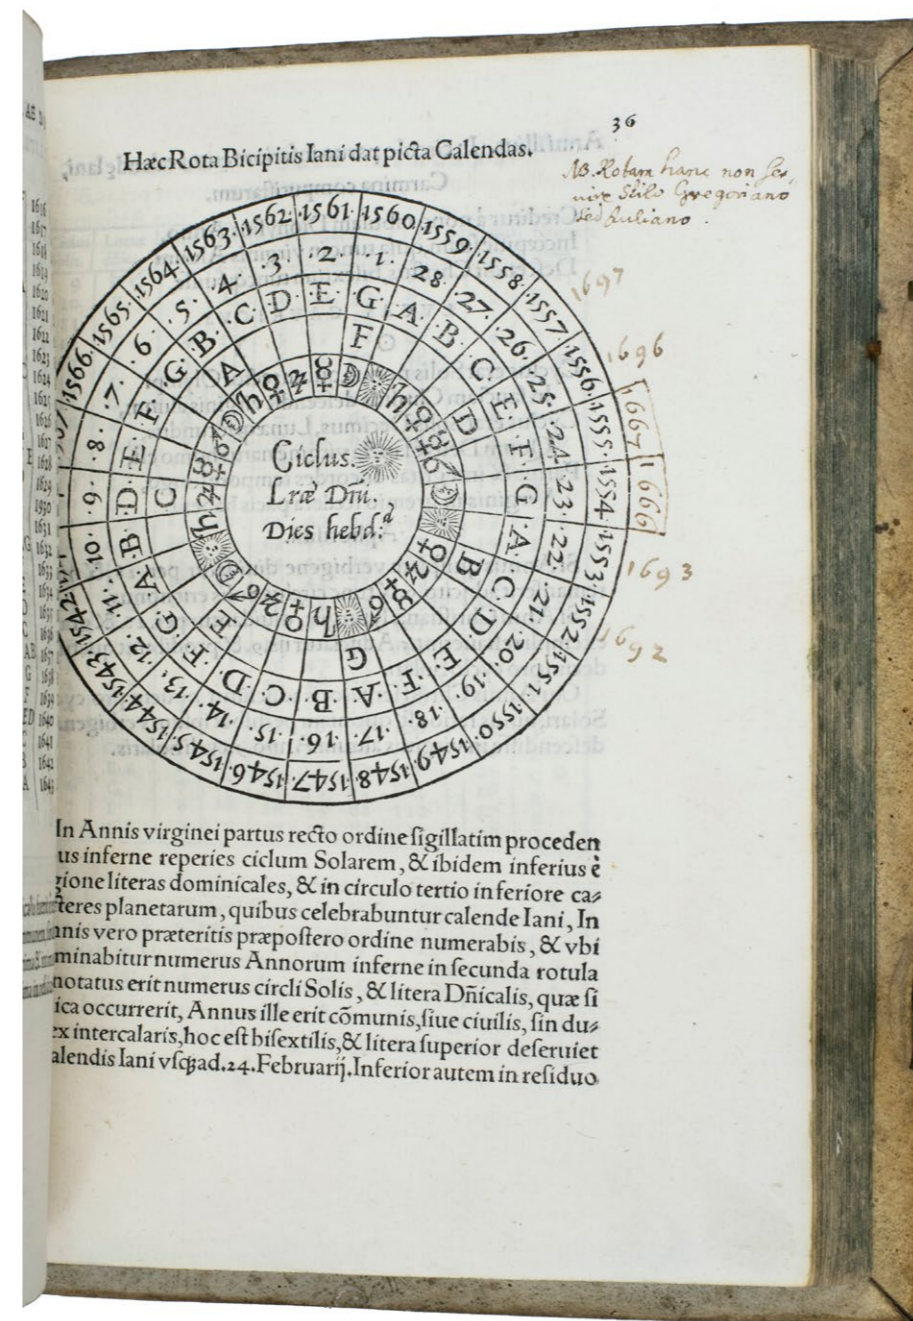 36
Hæc Rota Bicipitis Iani dat picta Calendas.
NB. Rotam hanc non ser-
vire Stilo Gregoriano
sed Juliano.
1697
1696
1667
1666
1693
1692
1560 1561 1562 1563 1564 1565 1566
1542 1543 1544 1545 1546 1547 1548 1549 1550 1551 1552 1553 1554 1555 1556 1557 1558 1559
·1· ·2· ·3· ·4· ·5· ·6· ·7· ·8· ·9· ·10· ·11· ·12· ·13· ·14· ·15· ·16· ·17· ·18· ·19· ·20· ·21· ·22· ·23· ·24· ·25· ·26· ·27· 28
G E D C B G F E D B A G F D C B A F E D C A G F E C B A
F A C E G B D
Ciclus.
Lræ Dñi.
Dies hebd:d
In Annis virginei partus recto ordine sigillatim proceden
us inferne reperies ciclum Solarem, & ibidem inferius è
gione literas dominicales, & in circulo tertio inferiore ca-
cteres planetarum, quibus celebrabuntur calende Iani, In
nnis vero præteritis præpostero ordine numerabis, & vbi
minabitur numerus Annorum inferne in secunda rotula
notatus erit numerus circli Solis, & litera Dñicalis, quæ si
ica occurrerit, Annus ille erit cõmunis, siue ciuilis, sin du-
ex intercalaris, hoc est bisextilis, & litera superior deseruiet
alendis Iani vsq; ad .24. Februarij. Inferior autem in residuo